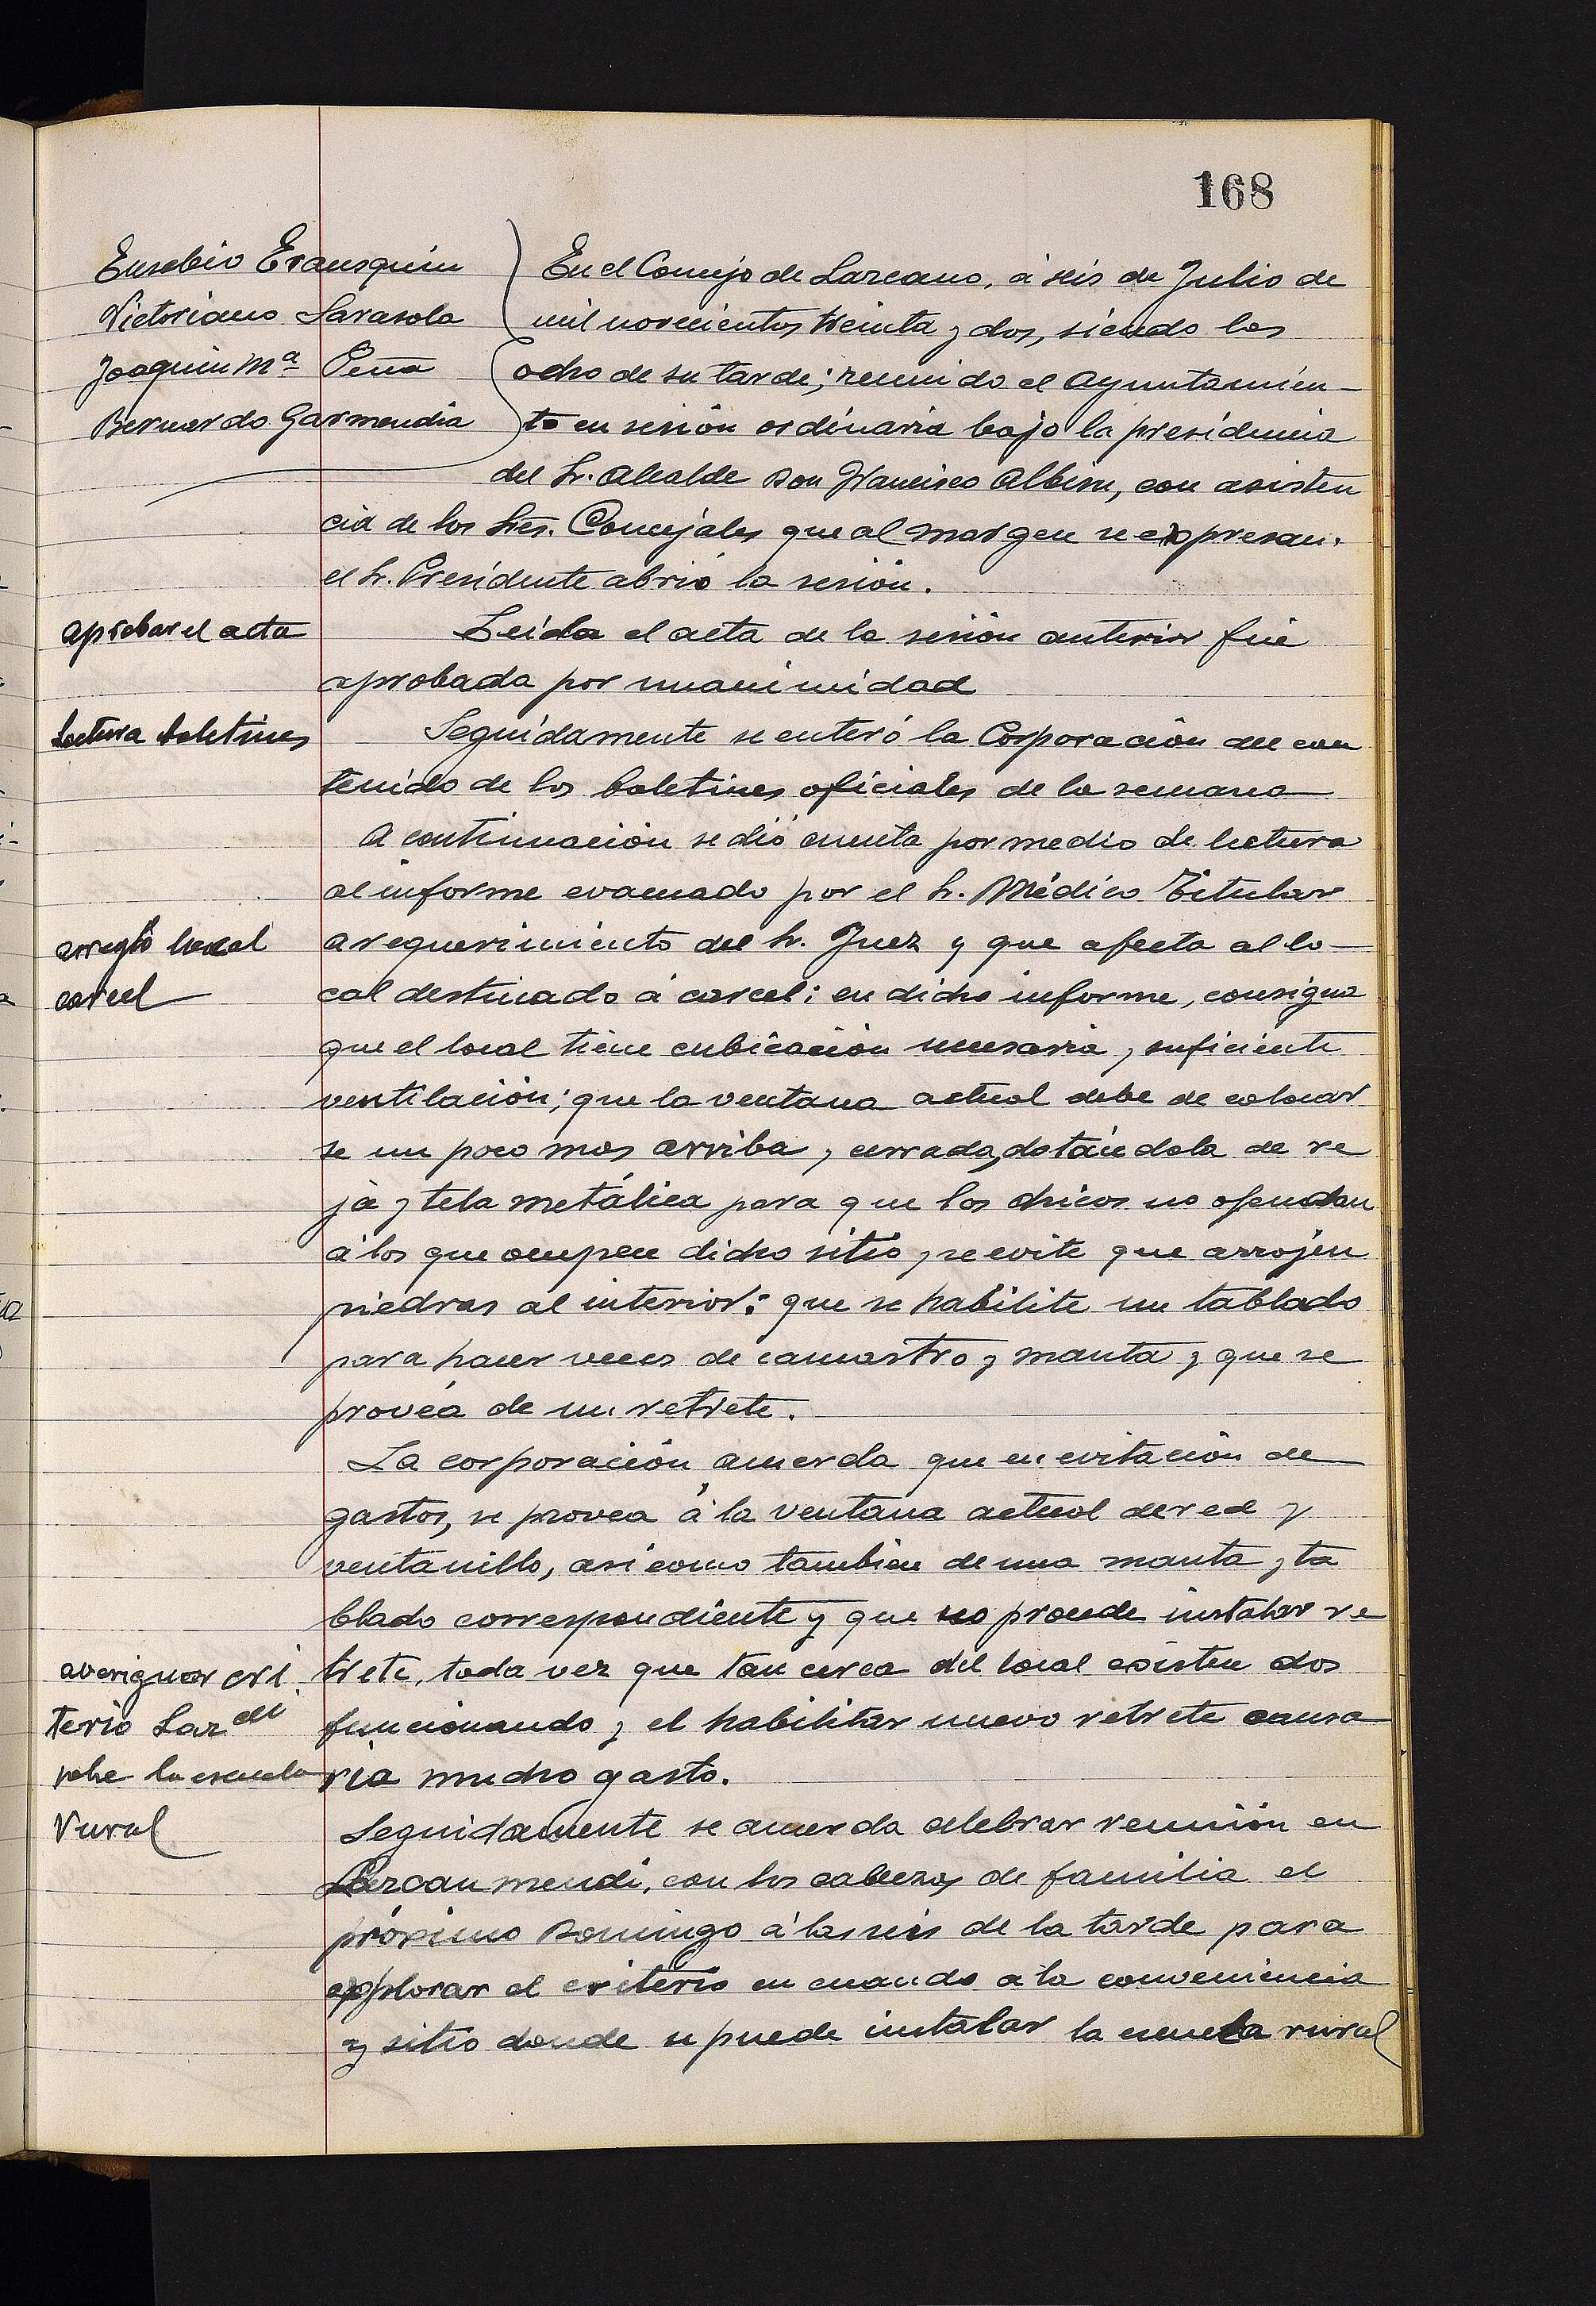 168
Eusebio Erausquin
Victoriano Sarasola
Joaquin Mª Peña
Bernardo Garmendia
En el Concejo de Lazcano, á seis de Julio de
mil novecientos treinta y dos, siendo las
ocho de su tarde; reunido el Ayuntamien-
to en sesión ordinaria bajo la presidencia
del Sr. Alcalde Don Francisco Albisu, con asisten
cia de los Sres. Concejales que al margen se expresan.
el Sr. Presidente abrió la sesión.
aprobar el acta
Leida el acta de la sesión anterior fué
aprobada por unanimidad
Lectura boletines
Seguidamente se enteró la Corporación del con
tenido de los boletines oficiales de la semana
A continuación se dió cuenta por medio de lectura
al informe evacuado por el Sr. Médico Titular
arreglo local
carcel
a requerimiento del Sr. Juez y que afecta al lo-
cal destinado á carcel: en dicho informe, consigna
que el local tiene cubicación necesaria y suficiente
ventilación; que la ventana actual debe de colocar
se un poco mas arriba y cerrada, dotándola de re
ja y tela metálica para que los chicos no ofendan
á los que ocupen dicho sitio y se evite que arrojen
piedras al interior: que se habilite un tablado
para hacer veces de camastro y manta y que se
provéa de un retrete.
La corporación acuerda que en evitación de
gastos, se provea á la ventana actual de red y
ventanillo, asi como tambien de una manta y ta
blado correspondiente y que no procede instalar re
averiguar cri
terio Laz
sobre la escuela
rural
trete, toda vez que tan cerca del local existen dos
funcionando y el habilitar nuevo retrete causa
ria mucho gasto.
Seguidamente se acuerda celebrar reunión en
Lazcaumendi, con los cabezas de familia el
próximo Domingo á las seis de la tarde para
explorar el criterio en cuando a la conveniencia
y sitio donde se puede instalar la escuela rural